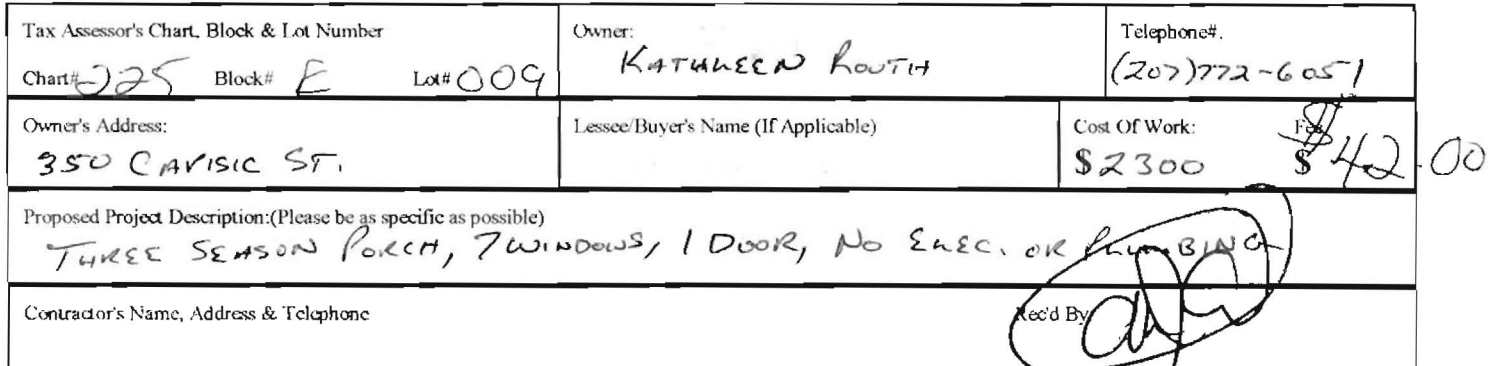 Tax Assessor's Chart, Block & Lot Number
Chart# 225 Block# E Lot# 009
Owner:
KATHLEEN ROUTH
Telephone#.
(207)772-6051
Owner's Address:
350 CAVISIC ST.
Lessee/Buyer's Name (If Applicable)
Cost Of Work:
$2300
Fee
$42.00
Proposed Project Description:(Please be as specific as possible)
THREE SEASON PORCH, 7 WINDOWS, 1 DOOR, NO ELEC. OR PLUMBING
Contractor's Name, Address & Telephone
Rec'd By